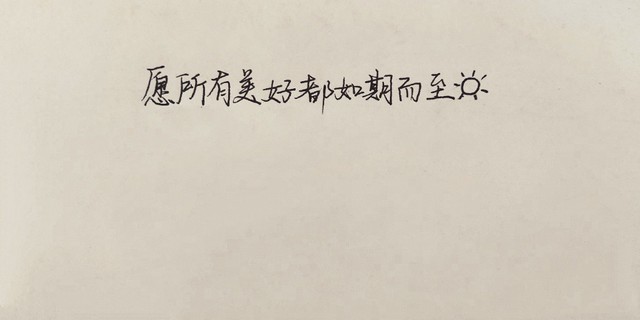 愿所有美好都如期而至☼